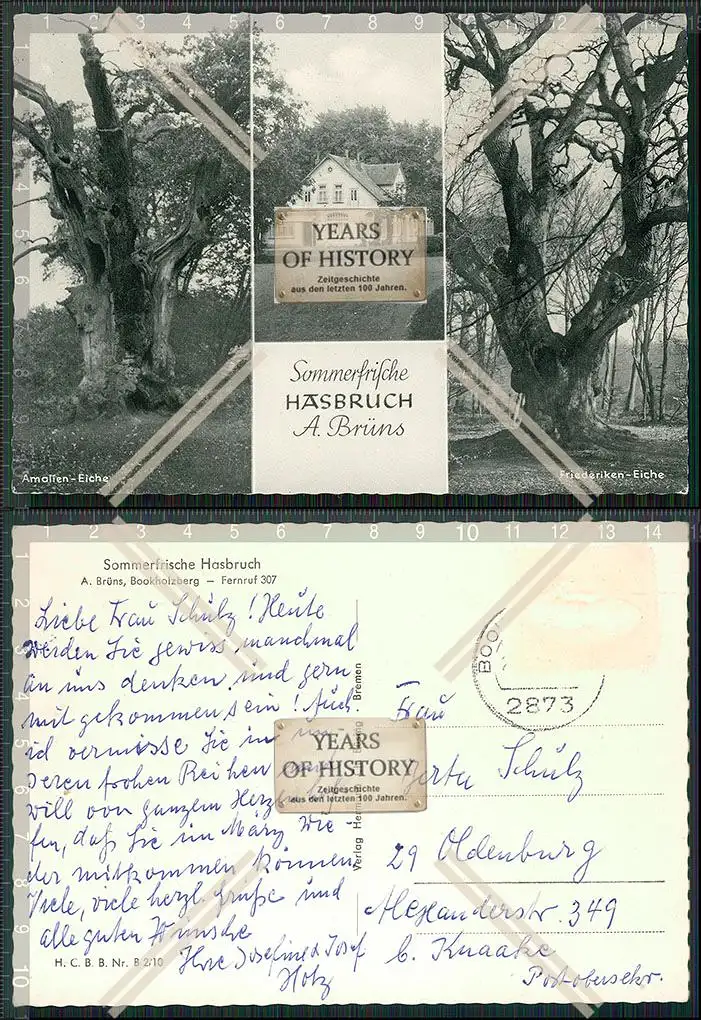 YEARS
OF HISTORY
Zeitgeschichte
aus den letzten 100 Jahren.
Sommerfrische
HASBRUCH
A. Brüns
Amalien-Eiche
Friederiken-Eiche
Sommerfrische Hasbruch
A. Brüns, Bookholzberg — Fernruf 307
Liebe Frau Schulz! Heute
werden Sie gewiss manchmal
an uns denken und gern
mit gekommen sein! Auch
ich vermisse Sie in un-
seren frohen Reihen und
will von ganzem Herzen
fen, daß Sie im März wie-
der mitkommen können.
Viele, viele herzl. Grüße und
alle guten Wünsche
Ihre Josefine u Josef
Hotz
H. C. B. B. Nr. B 2/10
Verlag Bremen
BOO
2873
YEARS
OF HISTORY
Zeitgeschichte
aus den letzten 100 Jahren.
Frau
Schulz
29 Oldenburg
Alexanderstr. 349
b. Knaake
Postobersekr.